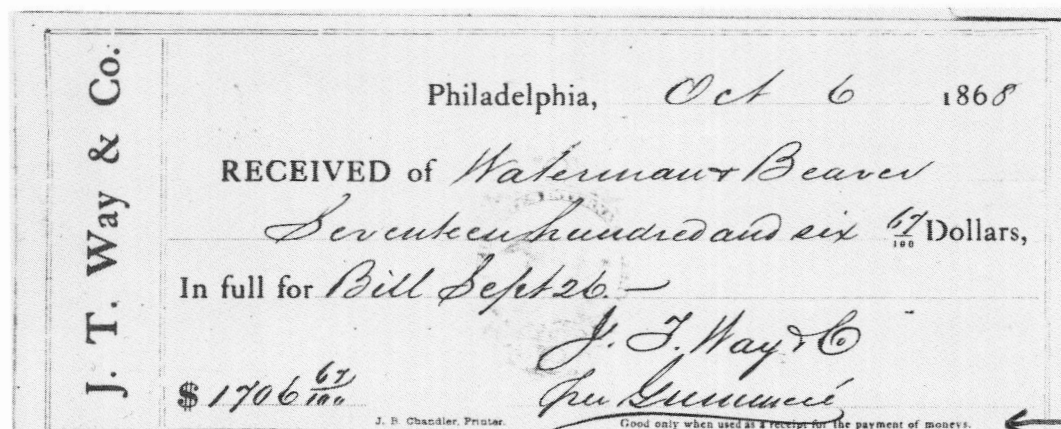 J. T. Way & Co.
Philadelphia, Oct 6 1868
RECEIVED of Waterman & Beaver
Seventeen hundred and six 67/100 Dollars,
In full for Bill Sept 26. —
J. T. Way & Co
$ 1706 67/100
per
J. B. Chandler, Printer.
Good only when used as a receipt for the payment of moneys.